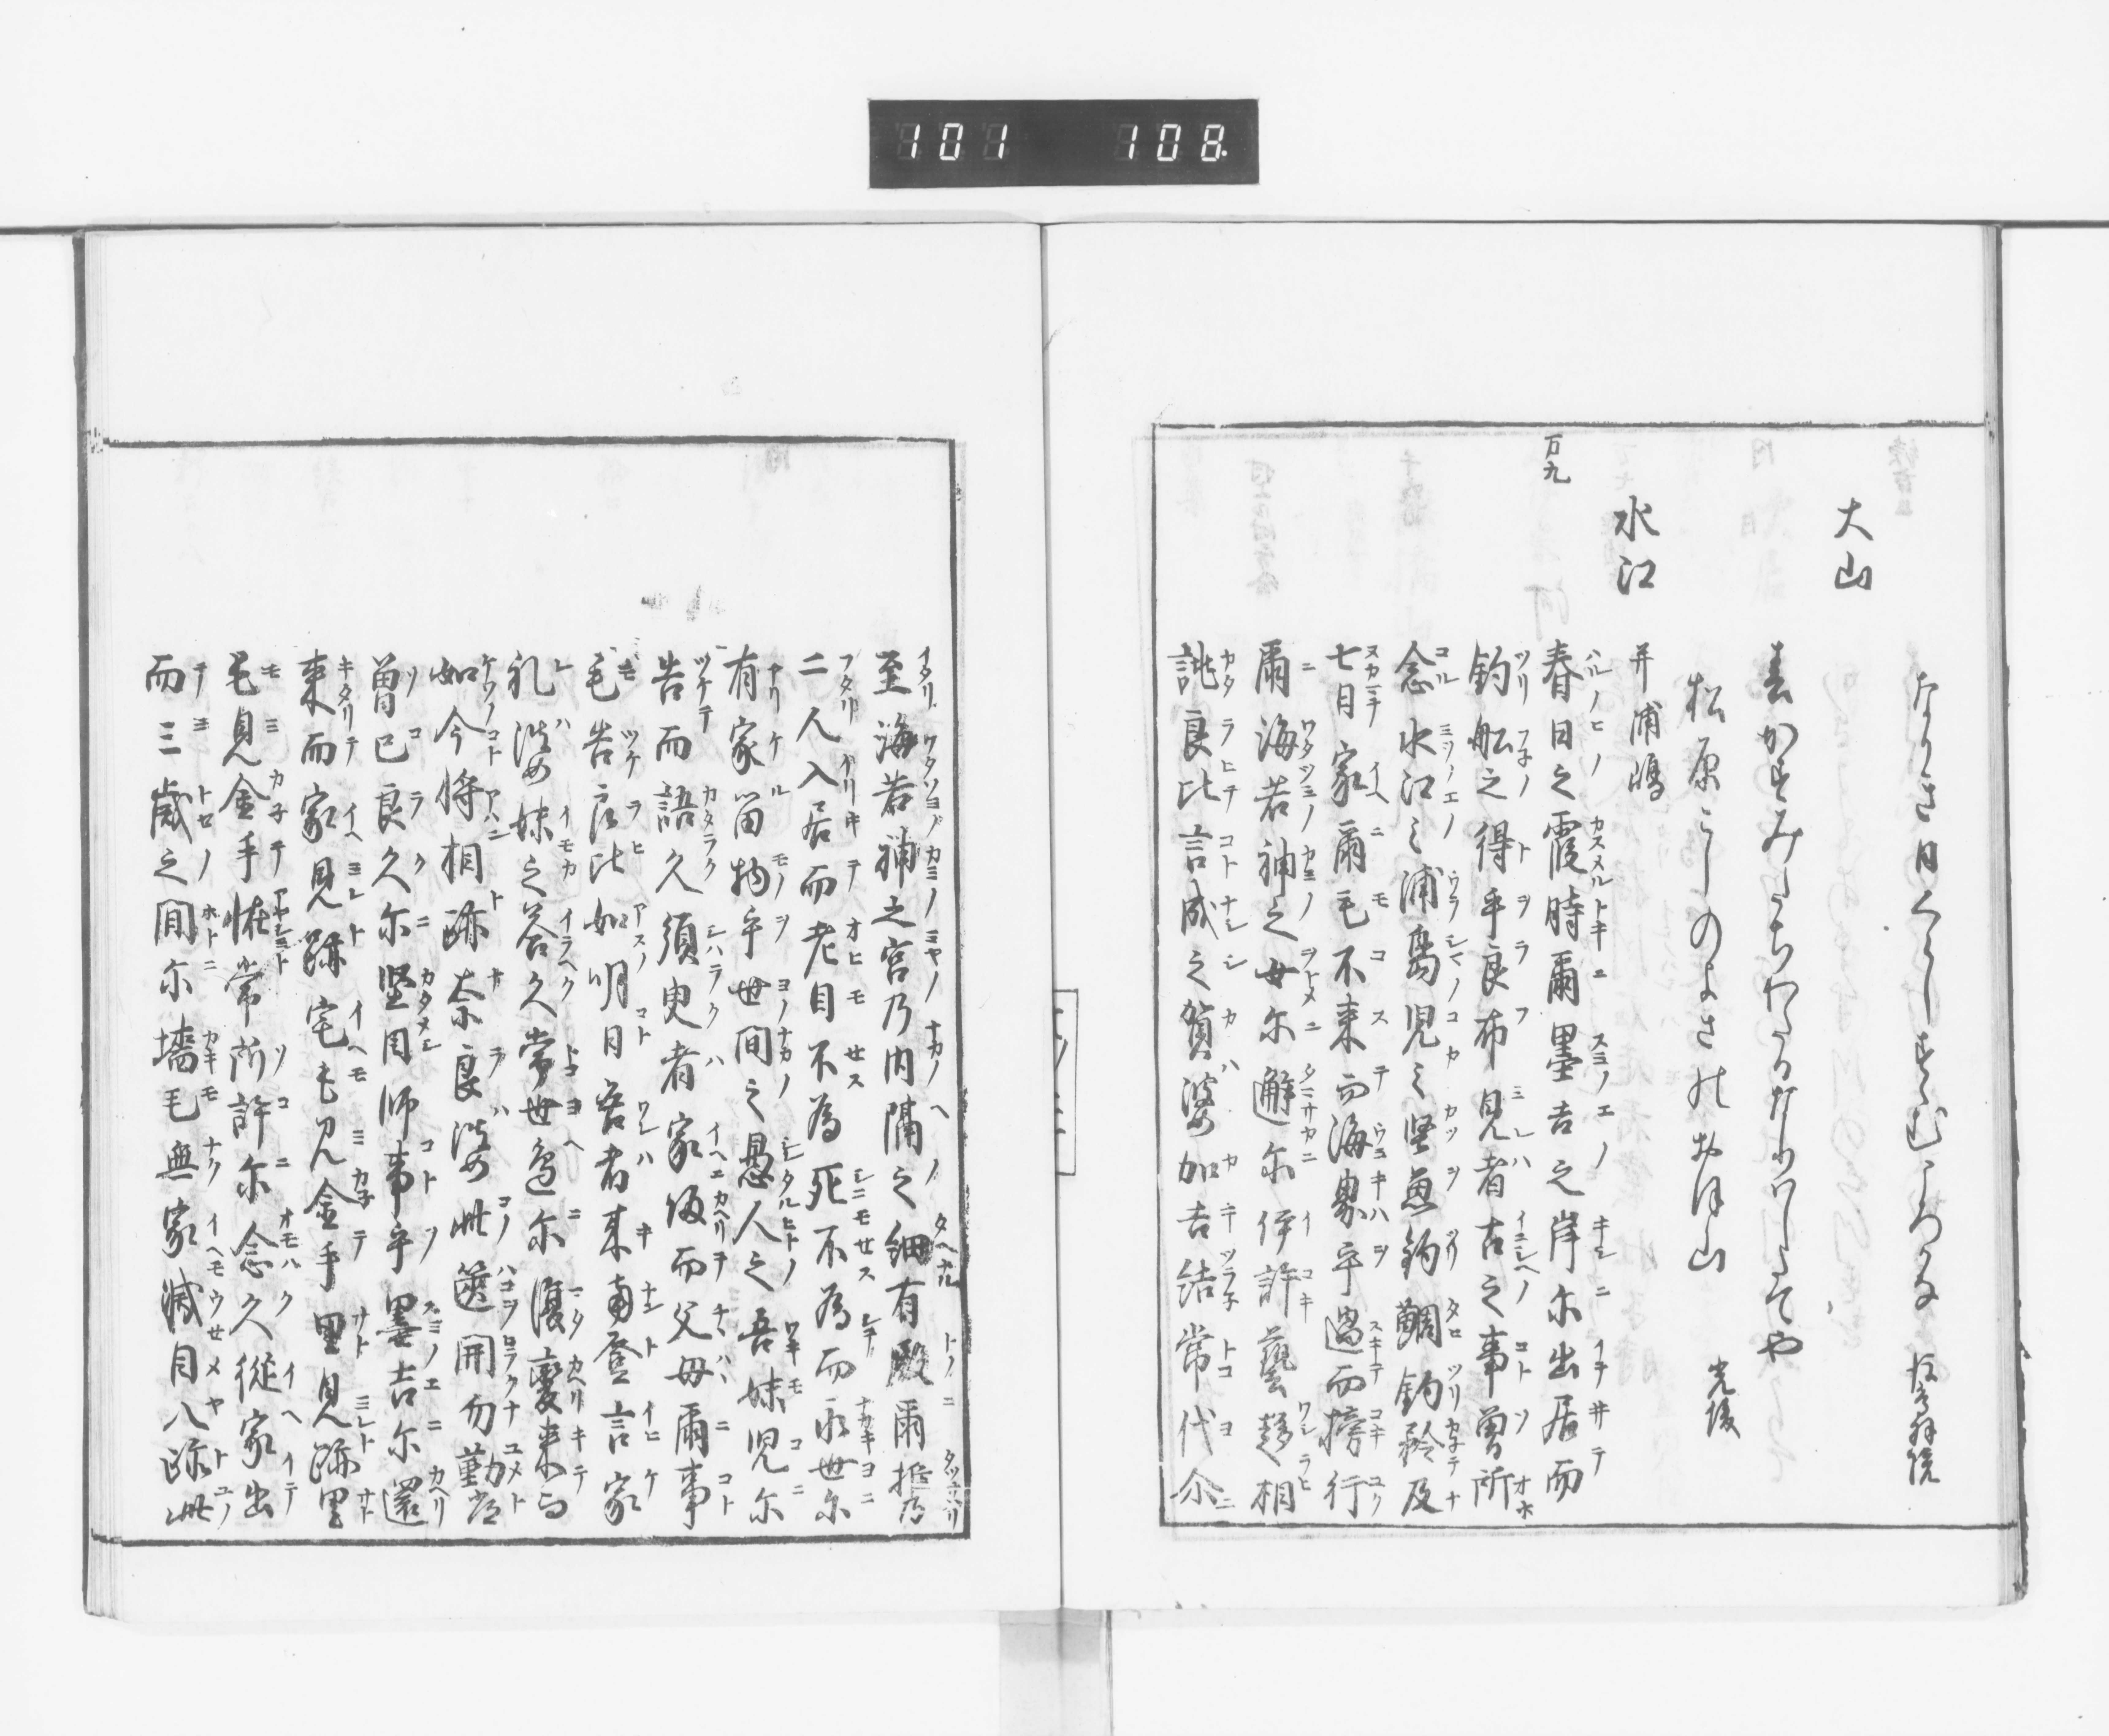 101 108.
なりき日くらしすゝむこゝろかな
大山
春かすみたちわたるなり
松原こしのよさのおほ山 光俊
水江
并浦嶋
万九
春日之霞時爾墨吉之岸尓出居而
釣船之得乎良布見者古之事曽所
念水江之浦島児之堅魚釣鯛釣矜及
七日家爾毛不来而海界乎過而榜行
爾海若神之女尓邂尓伊許藝趍相
誂良比言成之賀婆加吉結常代尓
至海若神之宮乃内隔之細有殿爾携乃
二人入居而老目不為死不為而永世尓
有家留物乎世間之愚人之吾妹児尓
告而語久須臾者家帰而父母爾事
毛告良比如明日吾者来南登言家
礼婆妹之答久常世邊尓復變来而
如今将相跡奈良婆此篋開勿勤常
曽己良久尓堅目師事乎墨吉尓還
来而家見跡宅毛見金手里見跡里
毛見金手恠常所許尓念久従家出
而三歳之間尓墻毛無家滅目八跡此